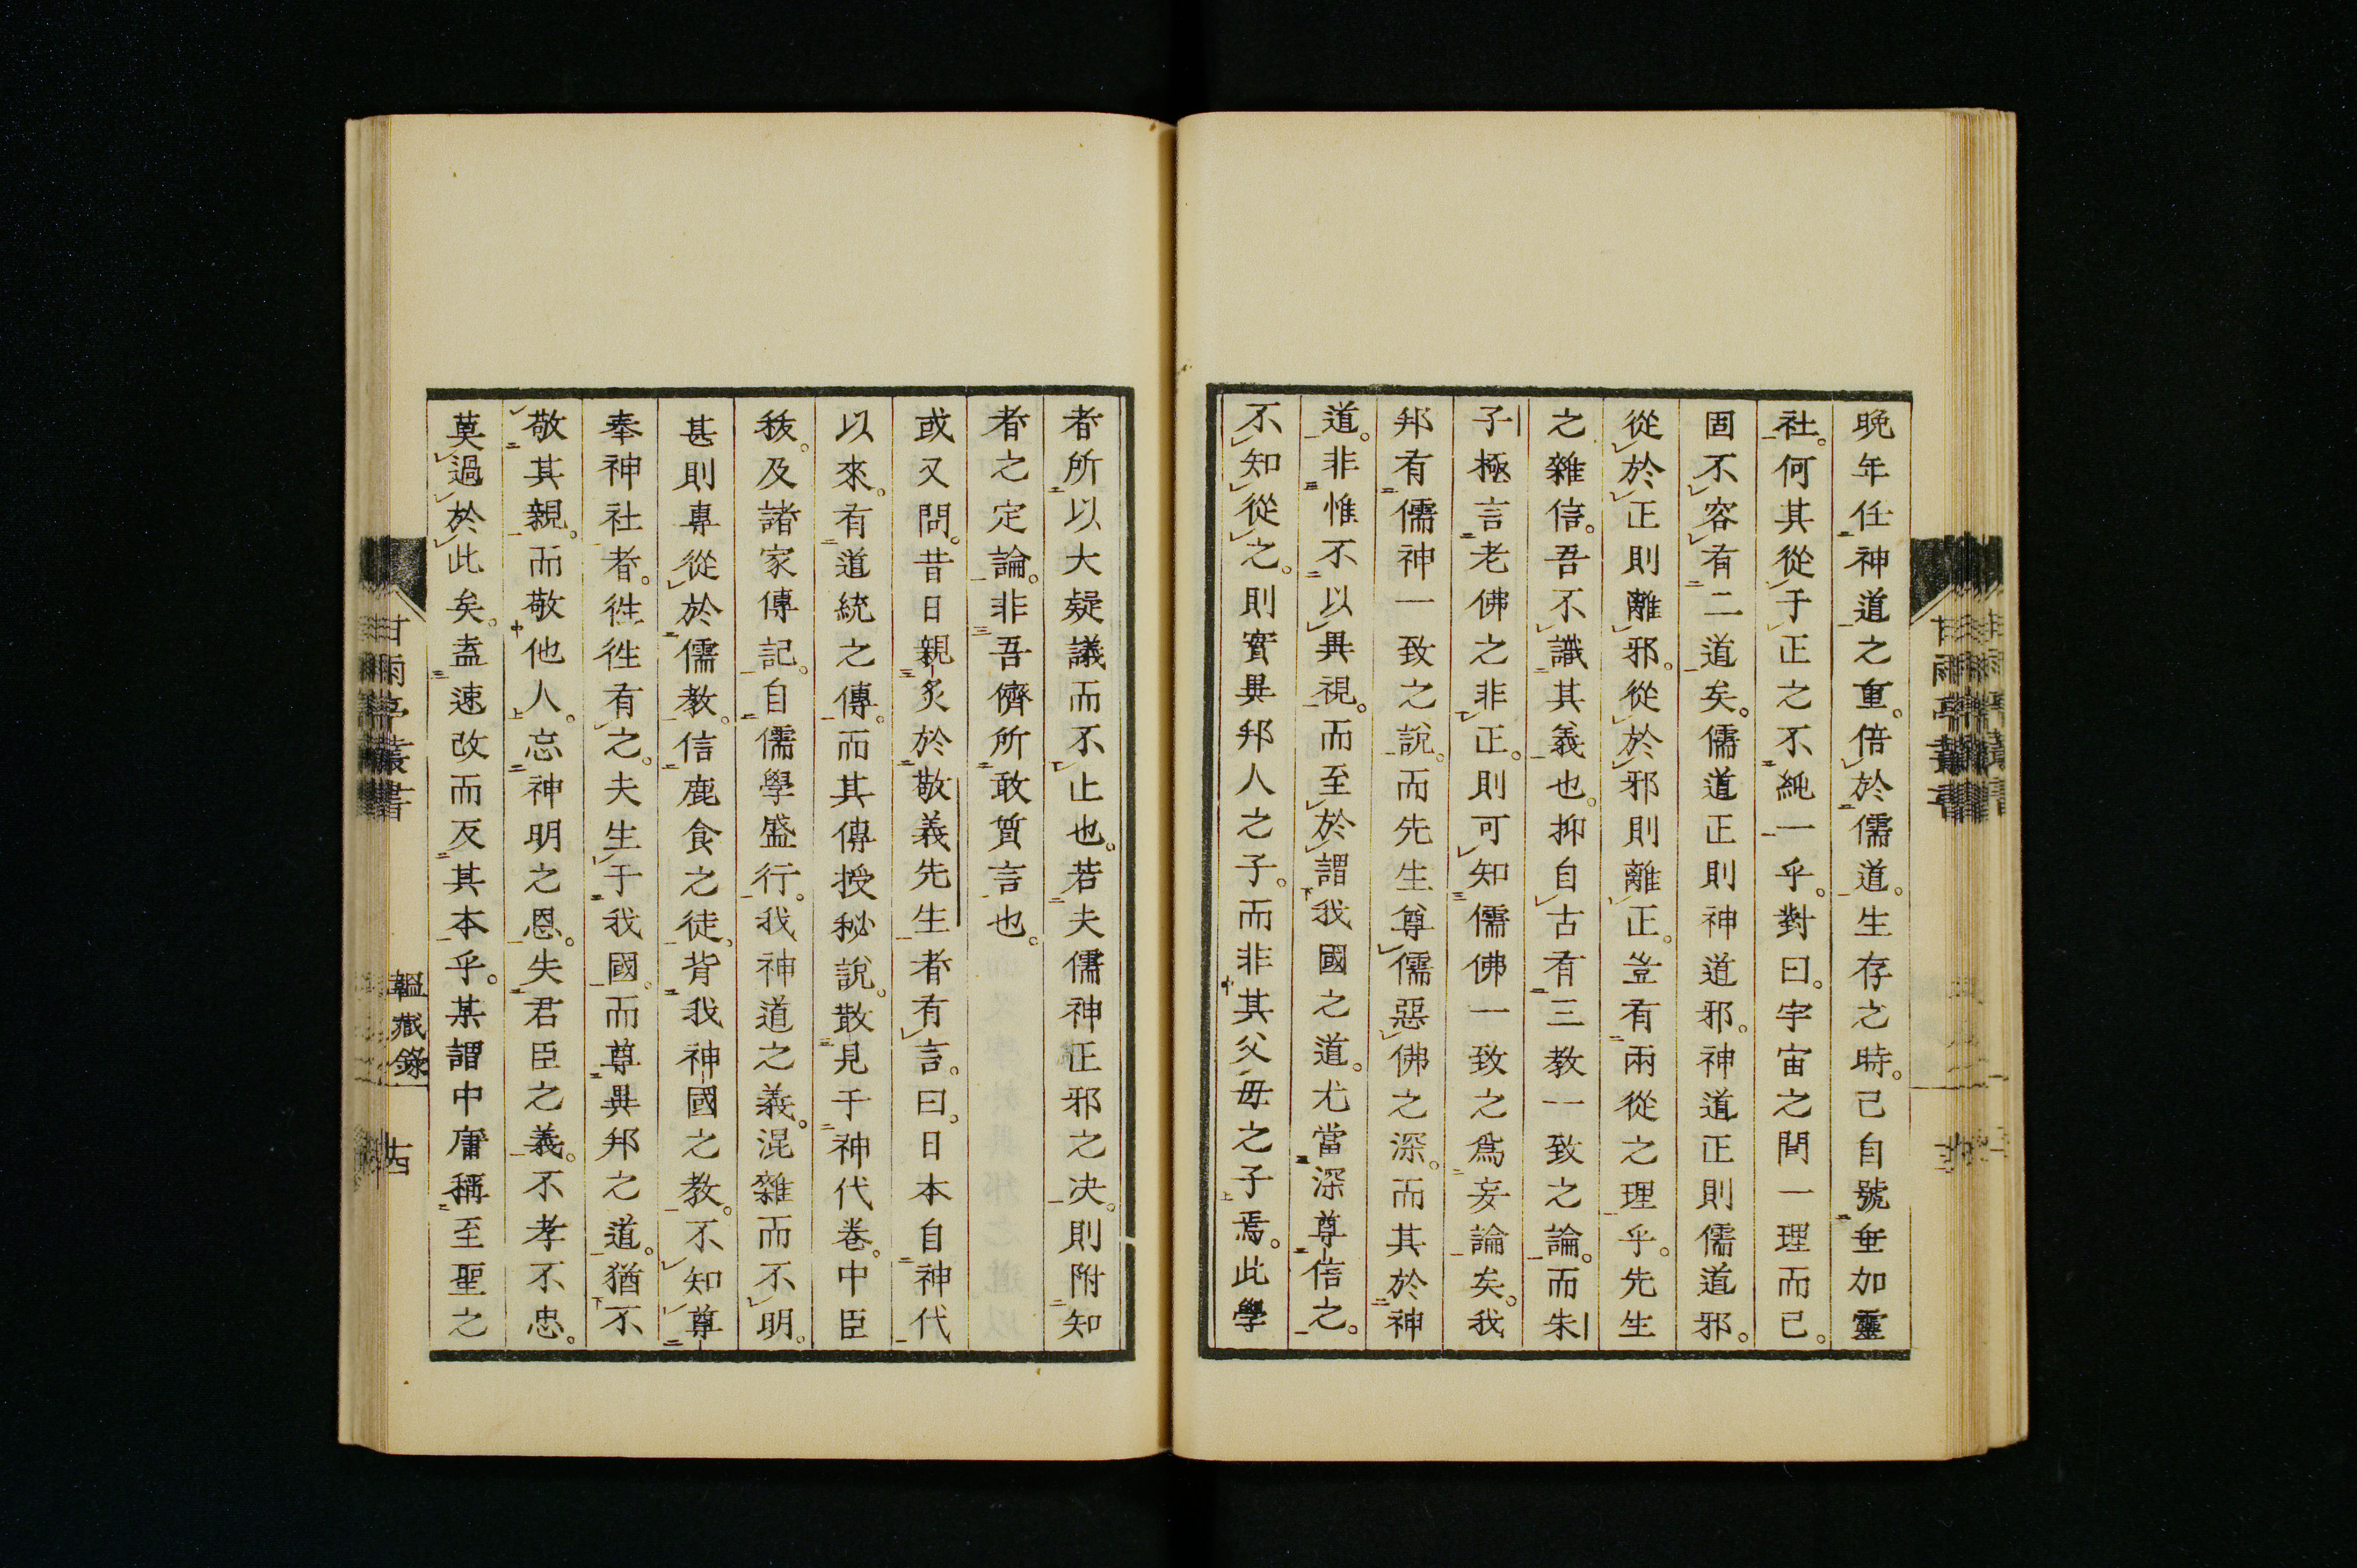 晩年任神道之重。倍於儒道。生存之時。己自號垂加靈
社。何其從于正之不純一乎。對曰。宇宙之間一理而已。
固不容有二道矣。儒道正則神道邪。神道正則儒道邪。
從於正則離邪。從於邪則離正。豈有兩從之理乎。先生
之雜信。吾不識其義也。抑自古有三教一致之論。而朱
子極言老佛之非正。則可知儒佛一致之爲妄論矣。我
邦有儒神一致之說。而先生尊儒惡佛之深。而其於神
道。非惟不以異視。而至於謂我國之道。尤當深尊信之。
不知從之。則實異邦人之子。而非其父母之子焉。此學
者所以大疑議而不止也。若夫儒神正邪之决。則附知
者之定論。非吾儕所敢質言也。
或又問。昔日親炙於敬義先生者有言。曰。日本自神代
以來。有道統之傳。而其傳授秘說。散見于神代卷。中臣
秡。及諸家傳記。自儒學盛行。我神道之義。混雜而不明。
甚則專從於儒教。信鹿食之徒。背我神國之教。不知尊
奉神社者。徃徃有之。夫生于我國。而尊異邦之道。猶不
敬其親。而敬他人。忘神明之恩。失君臣之義。不孝不忠。
莫過於此矣。盍速改而反其本乎。某謂中庸稱至聖之
甘雨亭叢書
韞藏錄
十四